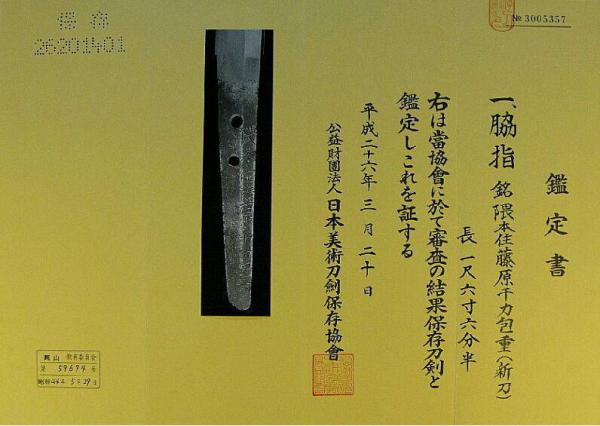 № 3005357
鑑定書
一、脇指 銘 隈本住藤原千力包重(新刀)
長 一尺六寸六分半
右は當協會に於て審査の結果保存刀剣と
鑑定しこれを証する
平成二十六年 三月 二十日
公益財團法人 日本美術刀劍保存協會
保存
26201401
教育委員会
第 59674 号
昭和44年 5月29日